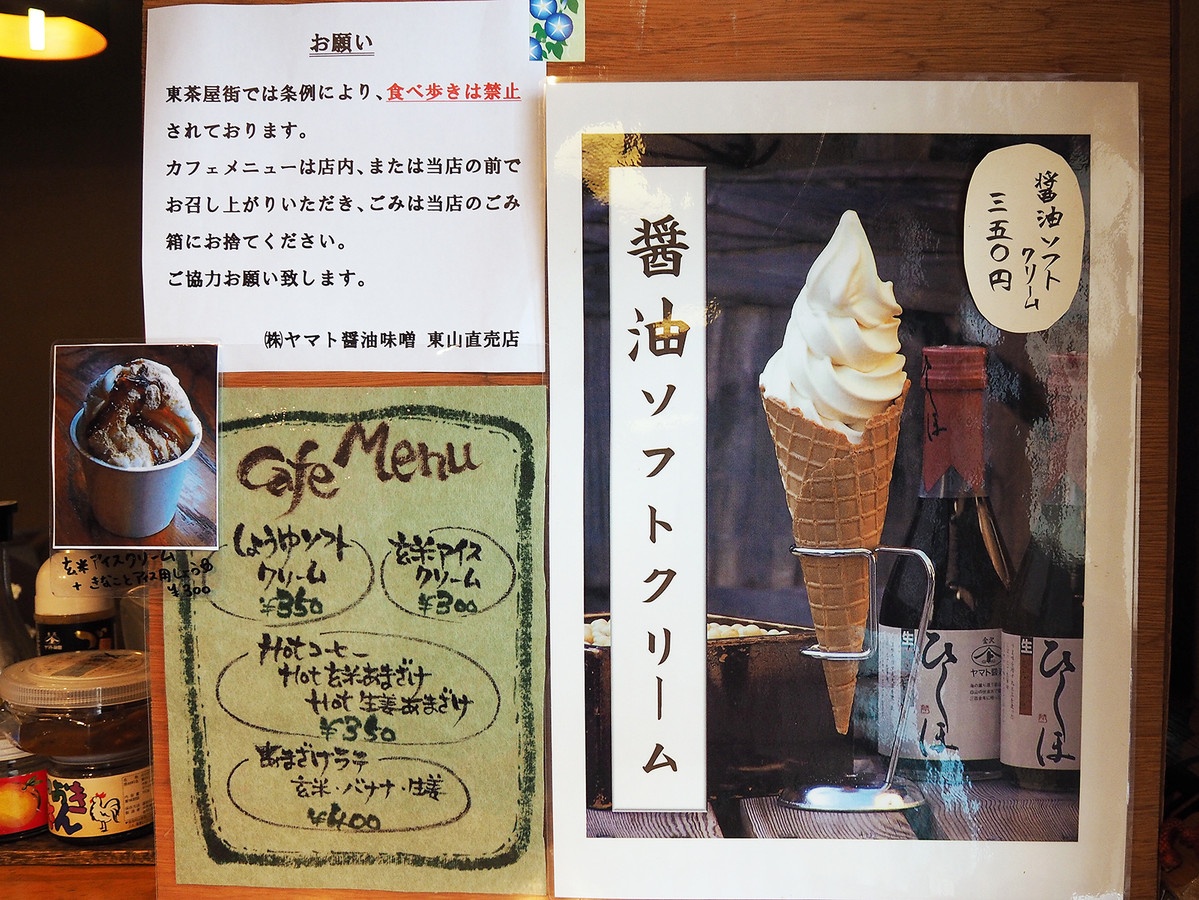 お願い
東茶屋街では条例により、食べ歩きは禁止
されております。
カフェメニューは店内、または当店の前で
お召し上がりいただき、ごみは当店のごみ
箱にお捨てください。
ご協力お願い致します。
㈱ヤマト醤油味噌 東山直売店
玄米アイスクリーム
+ きなことアイス用しょうゆ
¥300
Cafe Menu
しょうゆソフト
クリーム
¥350
玄米アイス
クリーム
¥300
Hotコーヒー
Hot 玄米あまざけ
Hot 生姜あまざけ
¥350
あまざけラテ
玄米・バナナ・生姜
¥400
醤油ソフトクリーム
醤油ソフト
クリーム
三五〇円
生
ひしほ
金沢
ヤマト醤油
生
ひしほ